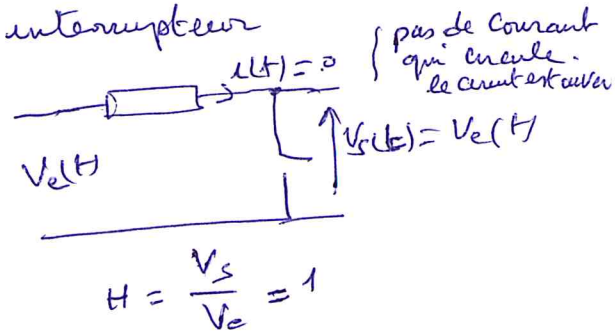 interrupteur
i(t)=0
{ pas de courant
qui circule.
le circuit est ouver
Ve(t)
Vs(t)=Ve(t)
H = Vs/Ve = 1